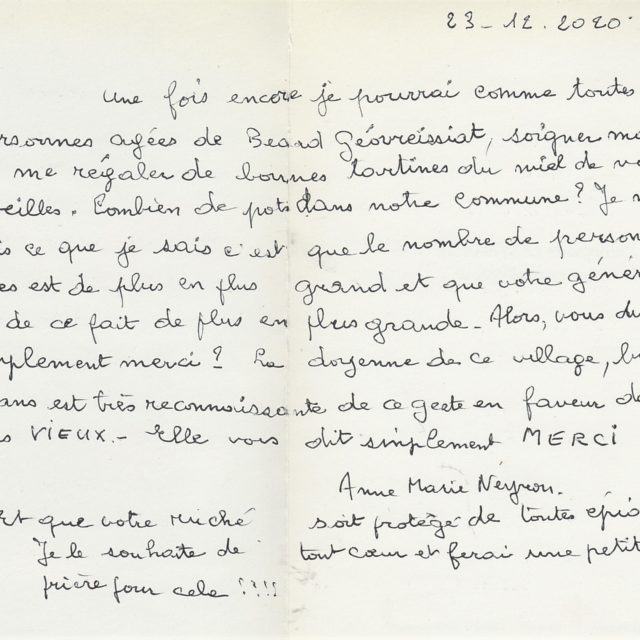 23-12.2020.
Une fois encore je pourrai comme toutes
ersonnes agées de Beard Géovreissiat, soigner ma
me régaler de bonnes tartines du miel de vo
eilles. Combien de pots dans notre commune? Je n
is ce que je sais c'est que le nombre de person
es est de plus en plus grand et que votre généro
de ce fait de plus en plus grande - Alors, vous du
mplement merci? La doyenne de ce village, bi
ans est très reconnaissante de ce geste en faveur de
s VIEUX.- Elle vous dit simplement MERCI
Anne Marie Neyron.
Et que votre ruché soit protégé de toutes épi
Je le souhaite de tout cœur et ferai une petit
prière pour cela !!!!